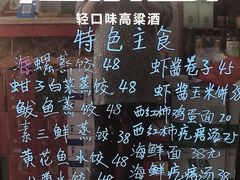 轻口味高粱酒
特色主食
海螺蒸饺 48
虾酱卷子 45
蚶子白菜蒸饺 48
虾酱玉米饼 38
鲅鱼蒸饺 48
西红柿鸡蛋面 20
素三鲜蒸饺 38
西红柿疙瘩汤 25
黄花鱼水饺 48
海鲜面 38元
水饺 48
海鲜疙瘩汤 38